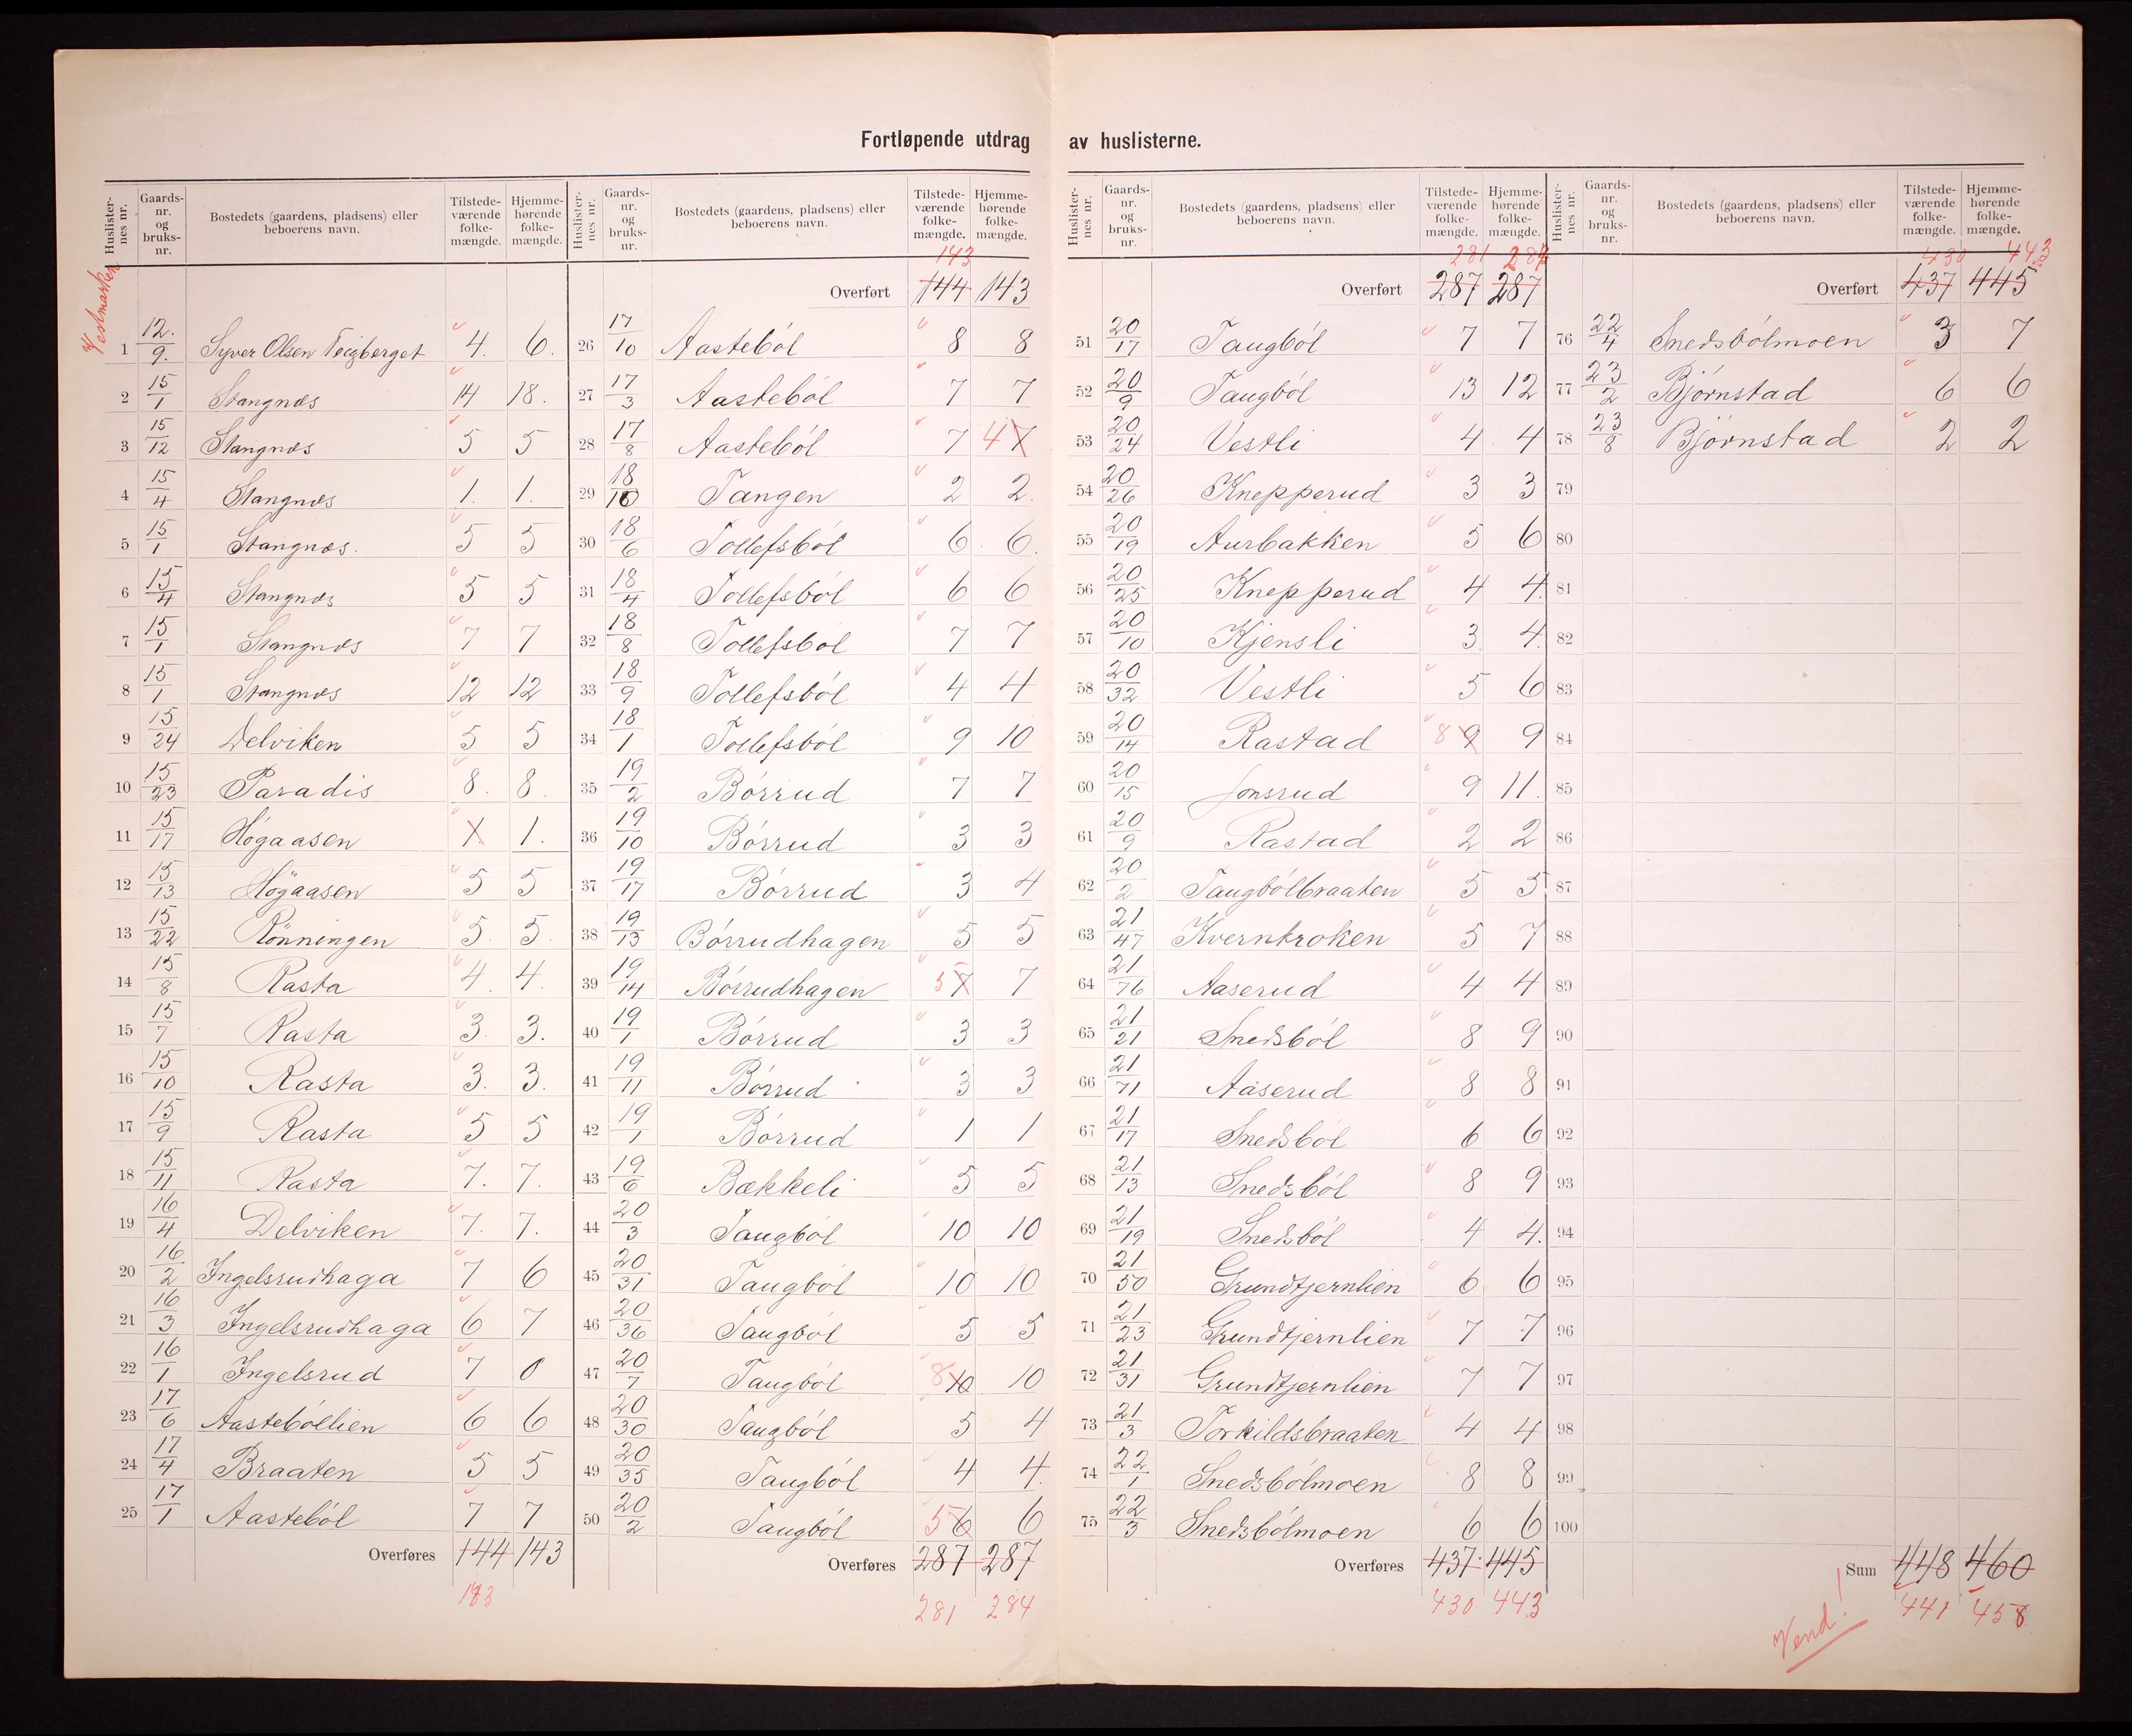 Fortløpende utdrag av huslisterne.
Vestmarken
Huslister-nes nr. | Gaards-nr. og bruks-nr. | Bostedets (gaardens, pladsens) eller beboerens navn. | Tilstede-værende folke-mængde. | Hjemme-hørende folke-mængde.
1 12./9. Syver Olsen Teigberget 4. 6.
2 15/1 Stangnæs 14 18.
3 15/12 Stangnæs 5 5
4 15/4 Stangnæs 1. 1.
5 15/1 Stangnæs. 5 5
6 15/4 Stangnæs 5 5
7 15/1 Stangnæs 7 7
8 15/1 Stangnæs 12 12
9 15/24 Delviken 5 5
10 15/23 Paradis 8. 8.
11 15/17 Högaasen 1 1.
12 15/13 Högaasen 5 5
13 15/22 Rönningen 5. 5.
14 15/8 Rasta 4. 4.
15 15/7 Rasta 3. 3.
16 15/10 Rasta 3. 3.
17 15/9 Rasta 5 5
18 15/11 Rasta 7. 7.
19 16/4 Delviken 7. 7.
20 16/2 Ingelsrudhaga 7 6
21 16/3 Ingelsrudhaga 6 7
22 16/1 Ingelsrud 7 0
23 17/6 Aasteböllien 6 6
24 17/4 Braaten 5 5
25 17/1 Aasteböl 7 7
Overføres 144 143
143
Huslister-nes nr. | Gaards-nr. og bruks-nr. | Bostedets (gaardens, pladsens) eller beboerens navn. | Tilstede-værende folke-mængde. | Hjemme-hørende folke-mængde.
143
Overført 144 143
26 17/10 Aasteböl 8 8
27 17/3 Aasteböl 7 7
28 17/8 Aasteböl 7 4 7
29 18/10 Tangen 2 2.
30 18/6 Tollefsböl 6. 6.
31 18/4 Tollefsböl 6 6
32 18/8 Tollefsböl 7 7
33 18/9 Tollefsböl 4 4
34 18/1 Tollefsböl 9 10
35 19/2 Börrud 7 7
36 19/10 Börrud 3 3
37 19/17 Börrud 3 4
38 19/13 Börrudhagen 5 5
39 19/14 Börrudhagen 5 7 7
40 19/1 Börrud 3 3
41 19/11 Börrud 3 3
42 19/1 Börrud 1 1
43 19/6 Bækkeli 5 5
44 20/3 Taugböl 10 10
45 20/31 Taugböl 10 10
46 20/36 Taugböl 5 5
47 20/7 Taugböl 8 10 10
48 20/30 Taugböl 5 4
49 20/35 Taugböl 4 4.
50 20/2 Taugböl 5 6 6
Overføres 287 287
281 284
Huslister-nes nr. | Gaards-nr. og bruks-nr. | Bostedets (gaardens, pladsens) eller beboerens navn. | Tilstede-værende folke-mængde. | Hjemme-hørende folke-mængde.
281 284
Overført 287 287
51 20/17 Taugböl 7 7
52 20/9 Taugböl 13 12
53 20/24 Vestli 4 4
54 20/26 Knepperud 3 3
55 20/19 Aurbakken 5 6
56 20/25 Knepperud 4 4.
57 20/10 Kjensli 3. 4.
58 20/32 Vestli 5 6
59 20/14 Rastad 8 9 9
60 20/15 Jonsrud 9 11.
61 20/9 Rastad 2 2
62 20/2 Taugbölbraaten 5 5
63 21/47 Kvernkroken 5 7
64 21/76 Aaserud 4 4
65 21/21 Snedsböl 8 9
66 21/71 Aaserud 8 8
67 21/17 Snedsböl 6 6
68 21/13 Snedsböl 8 9
69 21/19 Snedsböl 4 4.
70 21/50 Grundtjernlien 6 6
71 21/23 Grundtjernlien 7 7
72 21/31 Grundtjernlien 7 7
73 21/3 Torkildsbraaten 4 4
74 22/1 Snedsbölmoen 8 8
75 22/3 Snedsbölmoen 6 6
Overføres 437 445
430 443
Huslister-nes nr. | Gaards-nr. og bruks-nr. | Bostedets (gaardens, pladsens) eller beboerens navn. | Tilstede-værende folke-mængde. | Hjemme-hørende folke-mængde.
430 443
Overført 437 445
76 22/4 Snedsbölmoen 3 7
77 23/2 Björnstad 6 6
78 23/8 Björnstad 2 2
79
80
81
82
83
84
85
86
87
88
89
90
91
92
93
94
95
96
97
98
99
100
Sum 448 460
441 458
Vend!